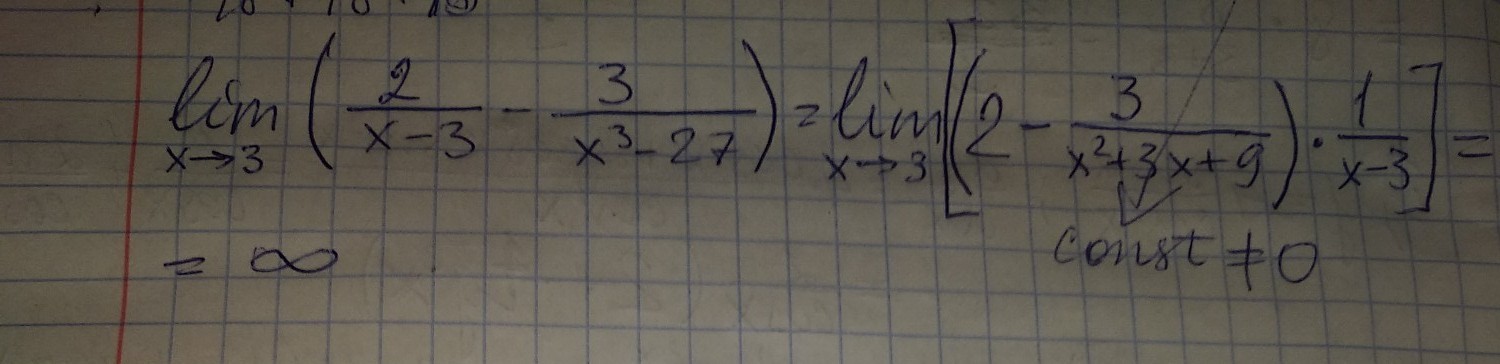 lim x→3 (2/(x-3) - 3/(x³-27)) = lim x→3 [(2 - 3/(x²+3x+9)) · 1/(x-3)] =
const ≠ 0
= ∞